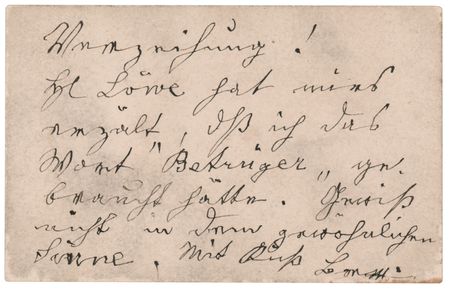 Verzeihung!
Hl Löwe hat mirs
erzält, dß ich das
Wort "Betrüger„ ge.
braucht hätte. Gewiß
nicht in dem gewöhnlichen
Sinne. Mit Kuß